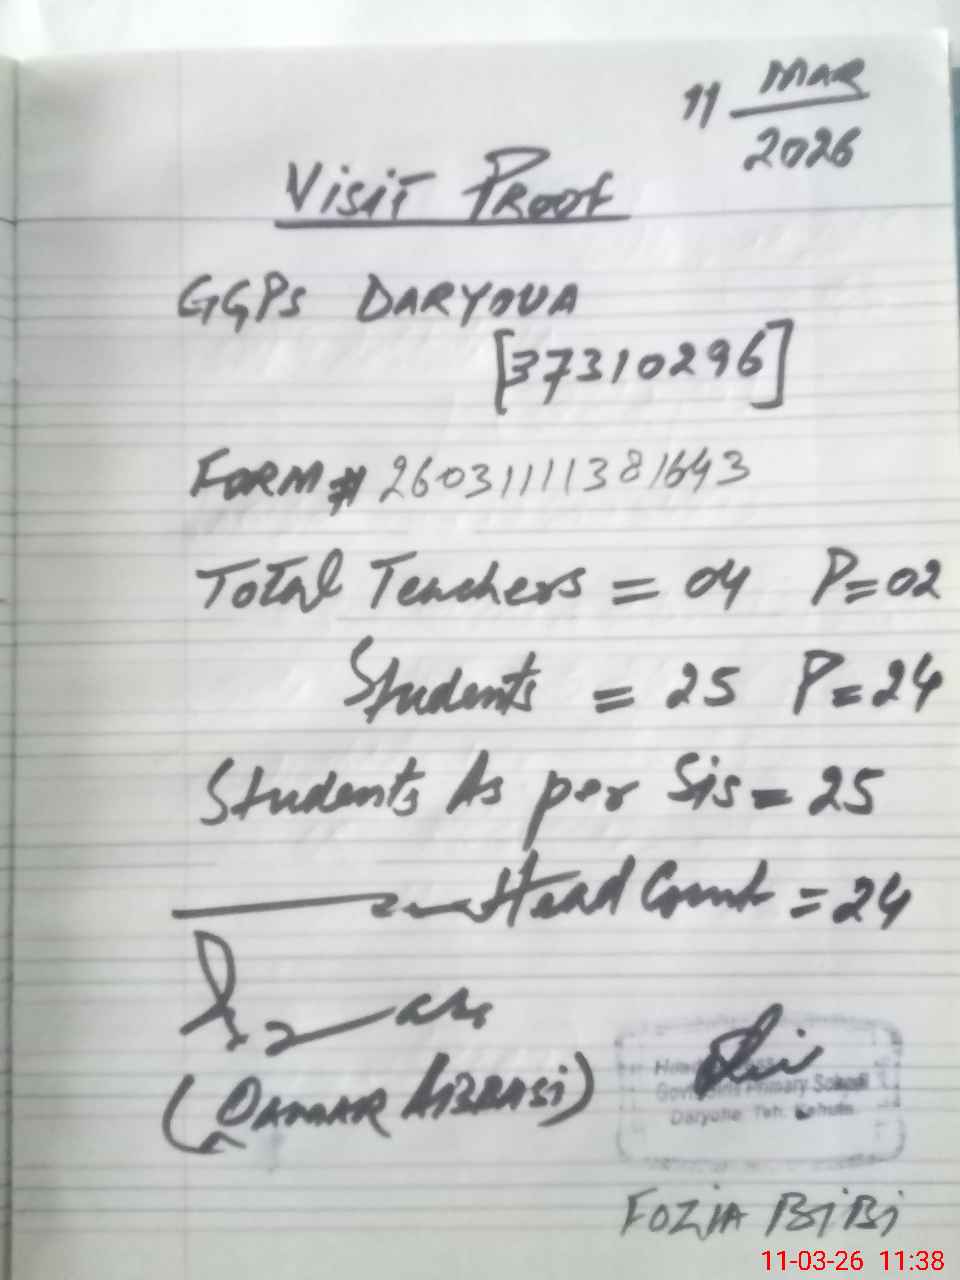 11 Mar
2026
Visit Proof
GGPS DARYOUA
[37310296]
Form # 26031111381643
Total Teachers = 04 P=02
Students = 25 P=24
Students As per Sis = 25
Head Count = 24
(QAMAR ABBASi)
Govt Girls Primary School
Daryohe Teh. Kahuta
FOZIA BiBi
11-03-26 11:38